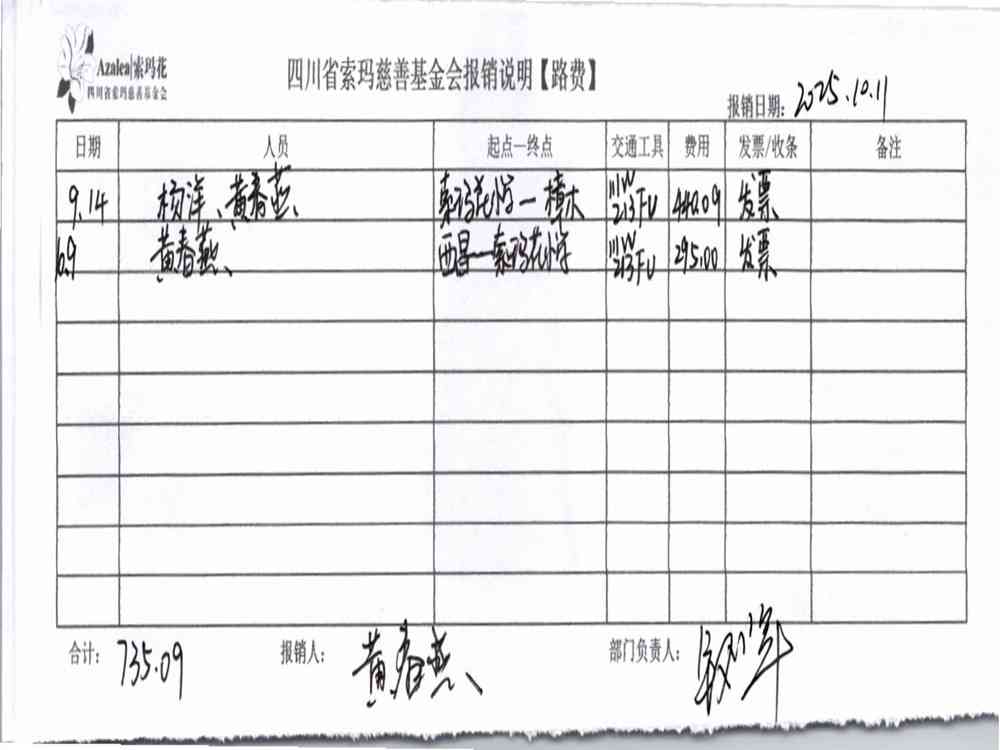 Azalea|索玛花
四川省索玛慈善基金会
四川省索玛慈善基金会报销说明【路费】
报销日期：2025.10.11
日期 人员 起点—终点 交通工具 费用 发票/收条 备注
9.14 杨洋、黄春燕 索玛花小学—樟木 川W213FU 440.09 发票
6.9 黄春燕、 西昌—索玛花小学 川W213FU 295.00 发票
合计：735.09 报销人：黄春燕、 部门负责人：